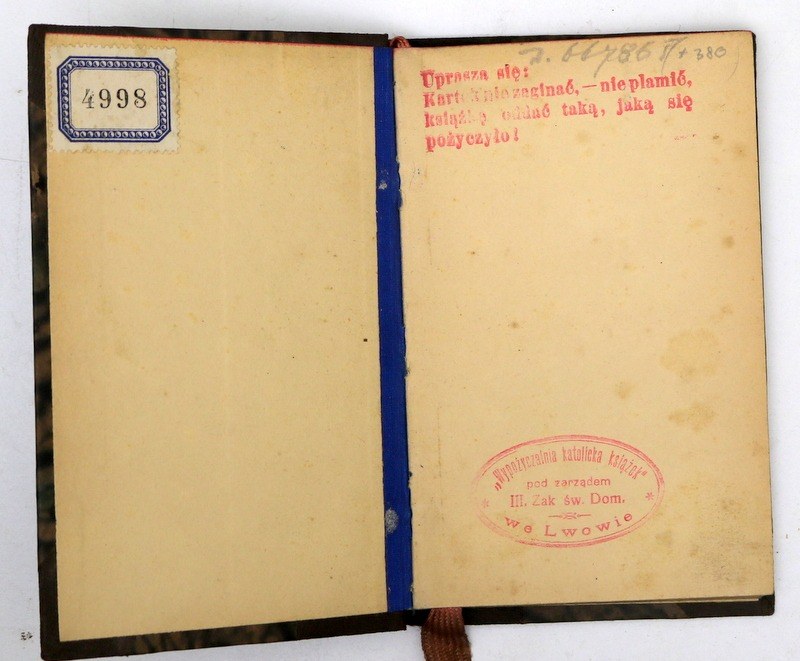 4998
66786 II + 380
Uprasza się:
Kartek nie zaginać, — nie plamić,
książkę oddać taką, jaką się
pożyczyło!
„Wypożyczalnia katolicka książek"
pod zarządem
III. Zak św. Dom.
we Lwowie